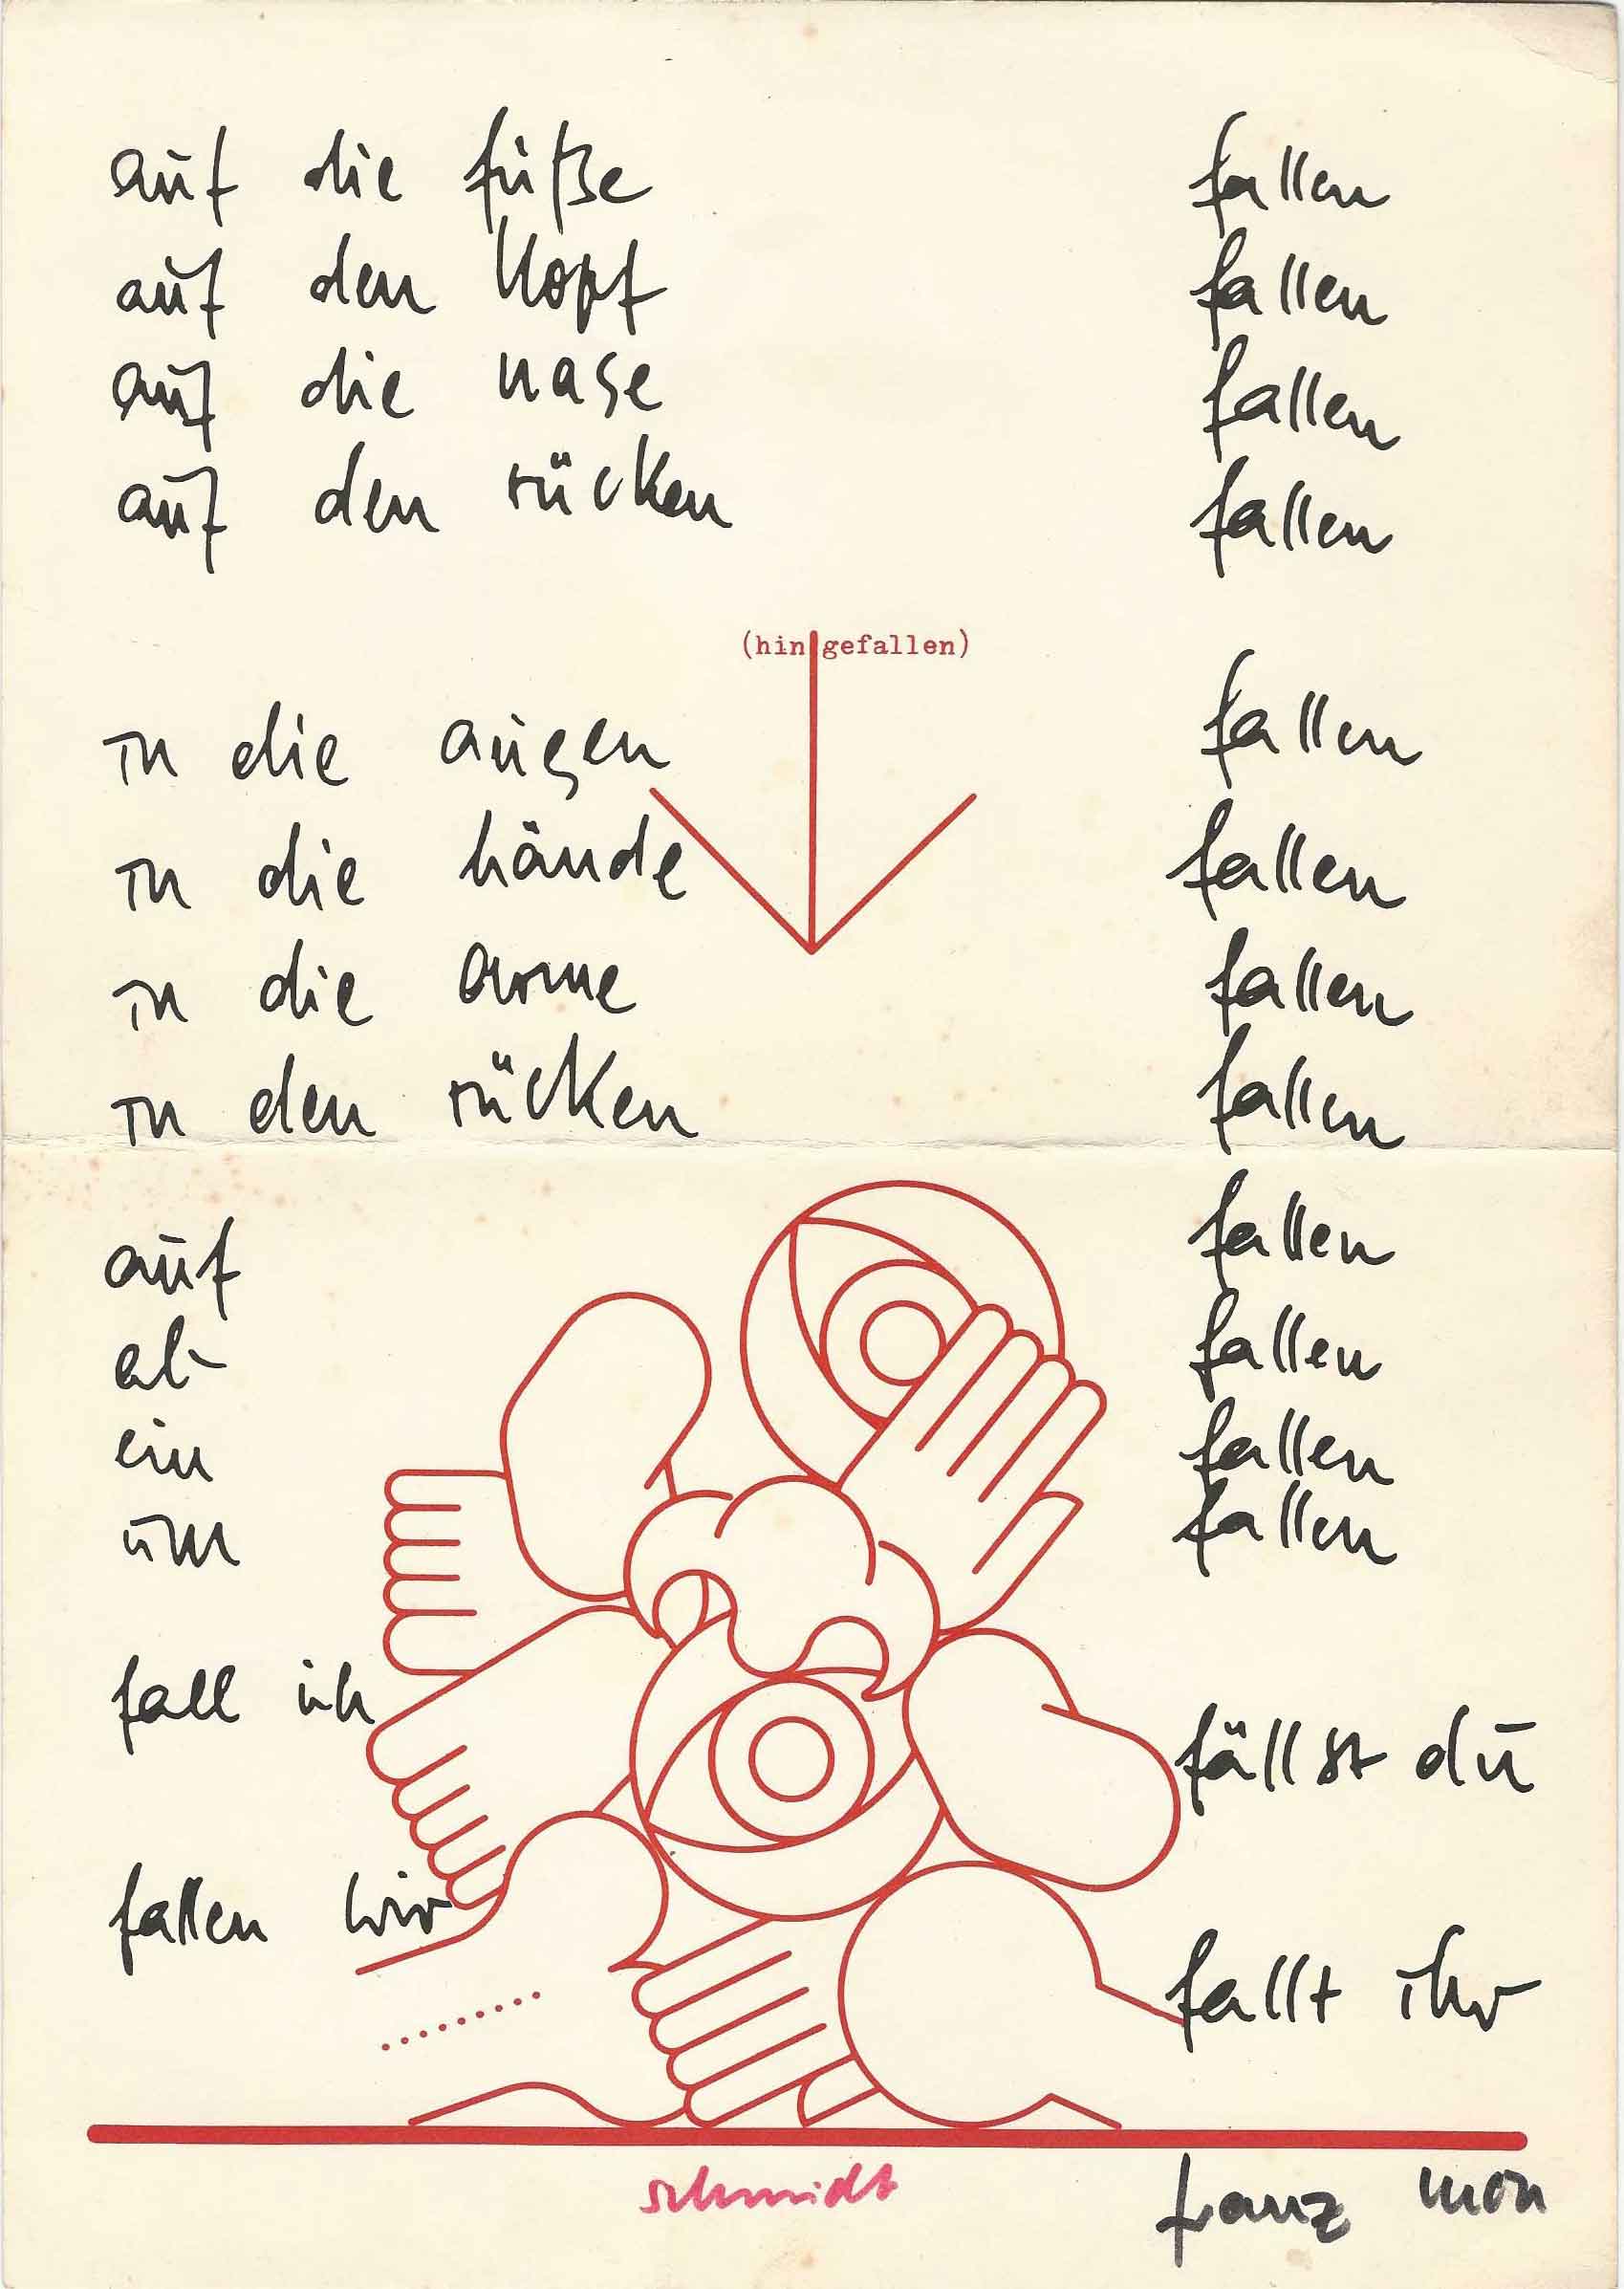 auf die füße fallen
auf den kopf fallen
auf die nase fallen
auf den rücken fallen
(hin gefallen)
in die augen fallen
in die hände fallen
in die arme fallen
in den rücken fallen
auf fallen
ab fallen
ein fallen
um fallen
fall ich fällst du
fallen wir fallt ihr
schmidt franz mon